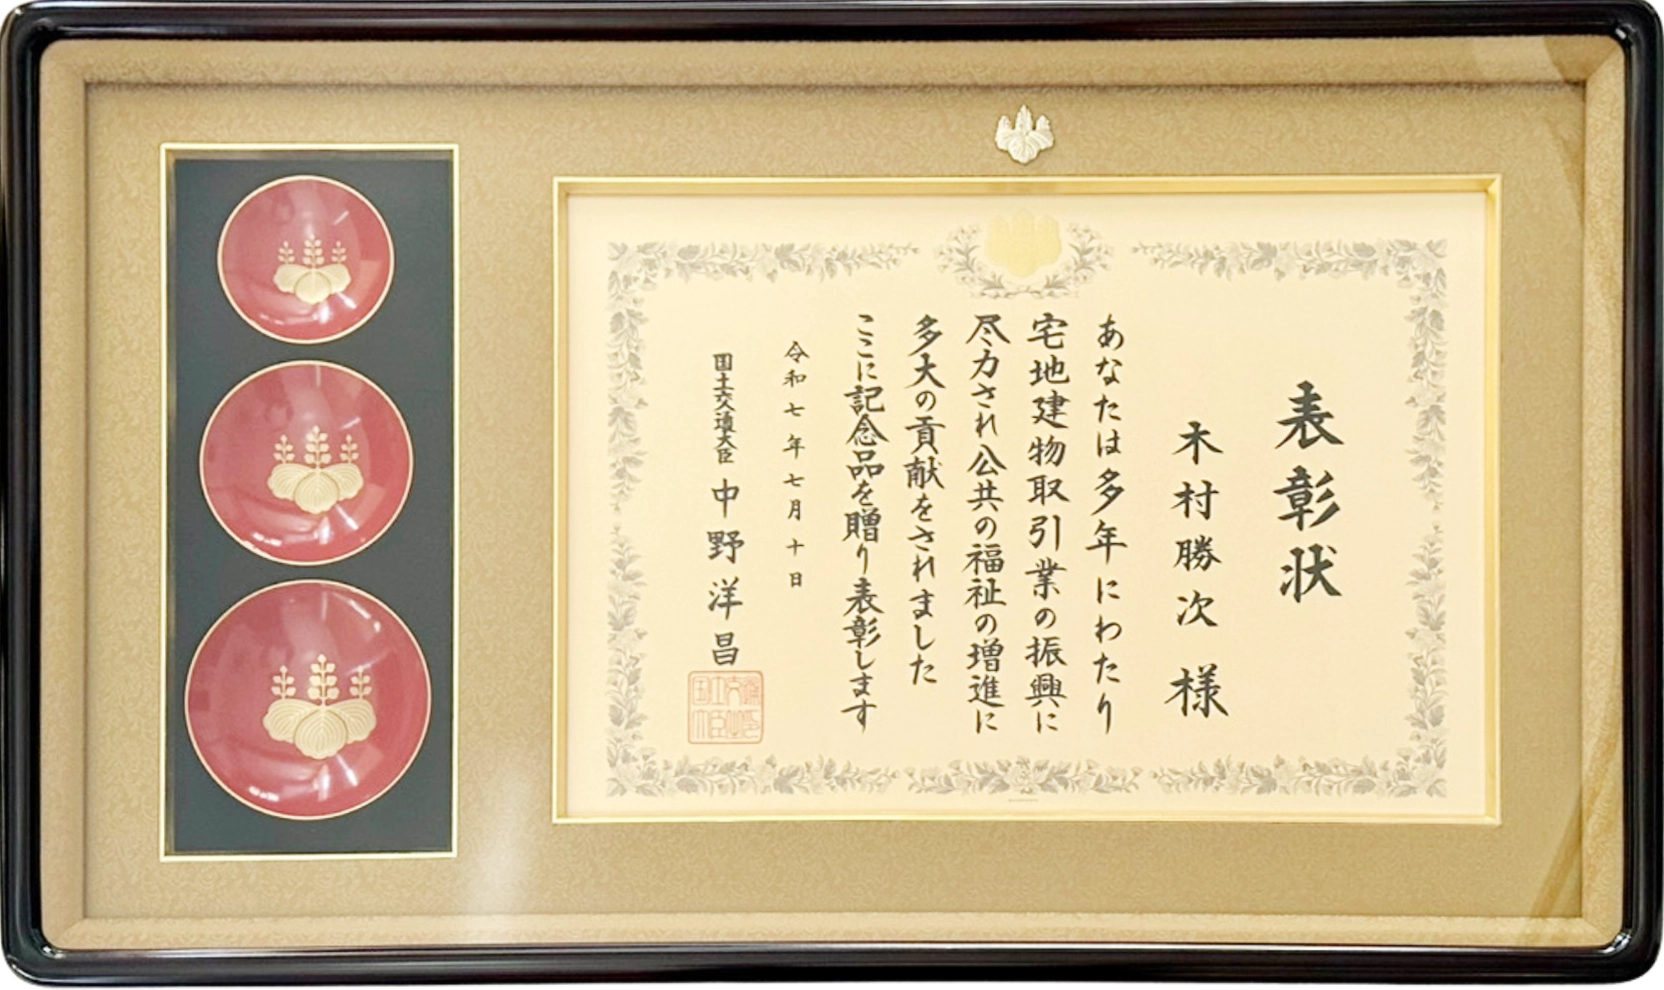 表彰状
木村勝次 様
あなたは多年にわたり
宅地建物取引業の振興に
尽力され公共の福祉の増進に
多大の貢献をされました
ここに記念品を贈り表彰します
令和七年七月十日
国土交通大臣 中野洋昌